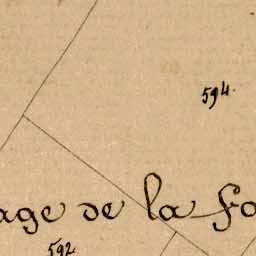 594.
age de la fo
592